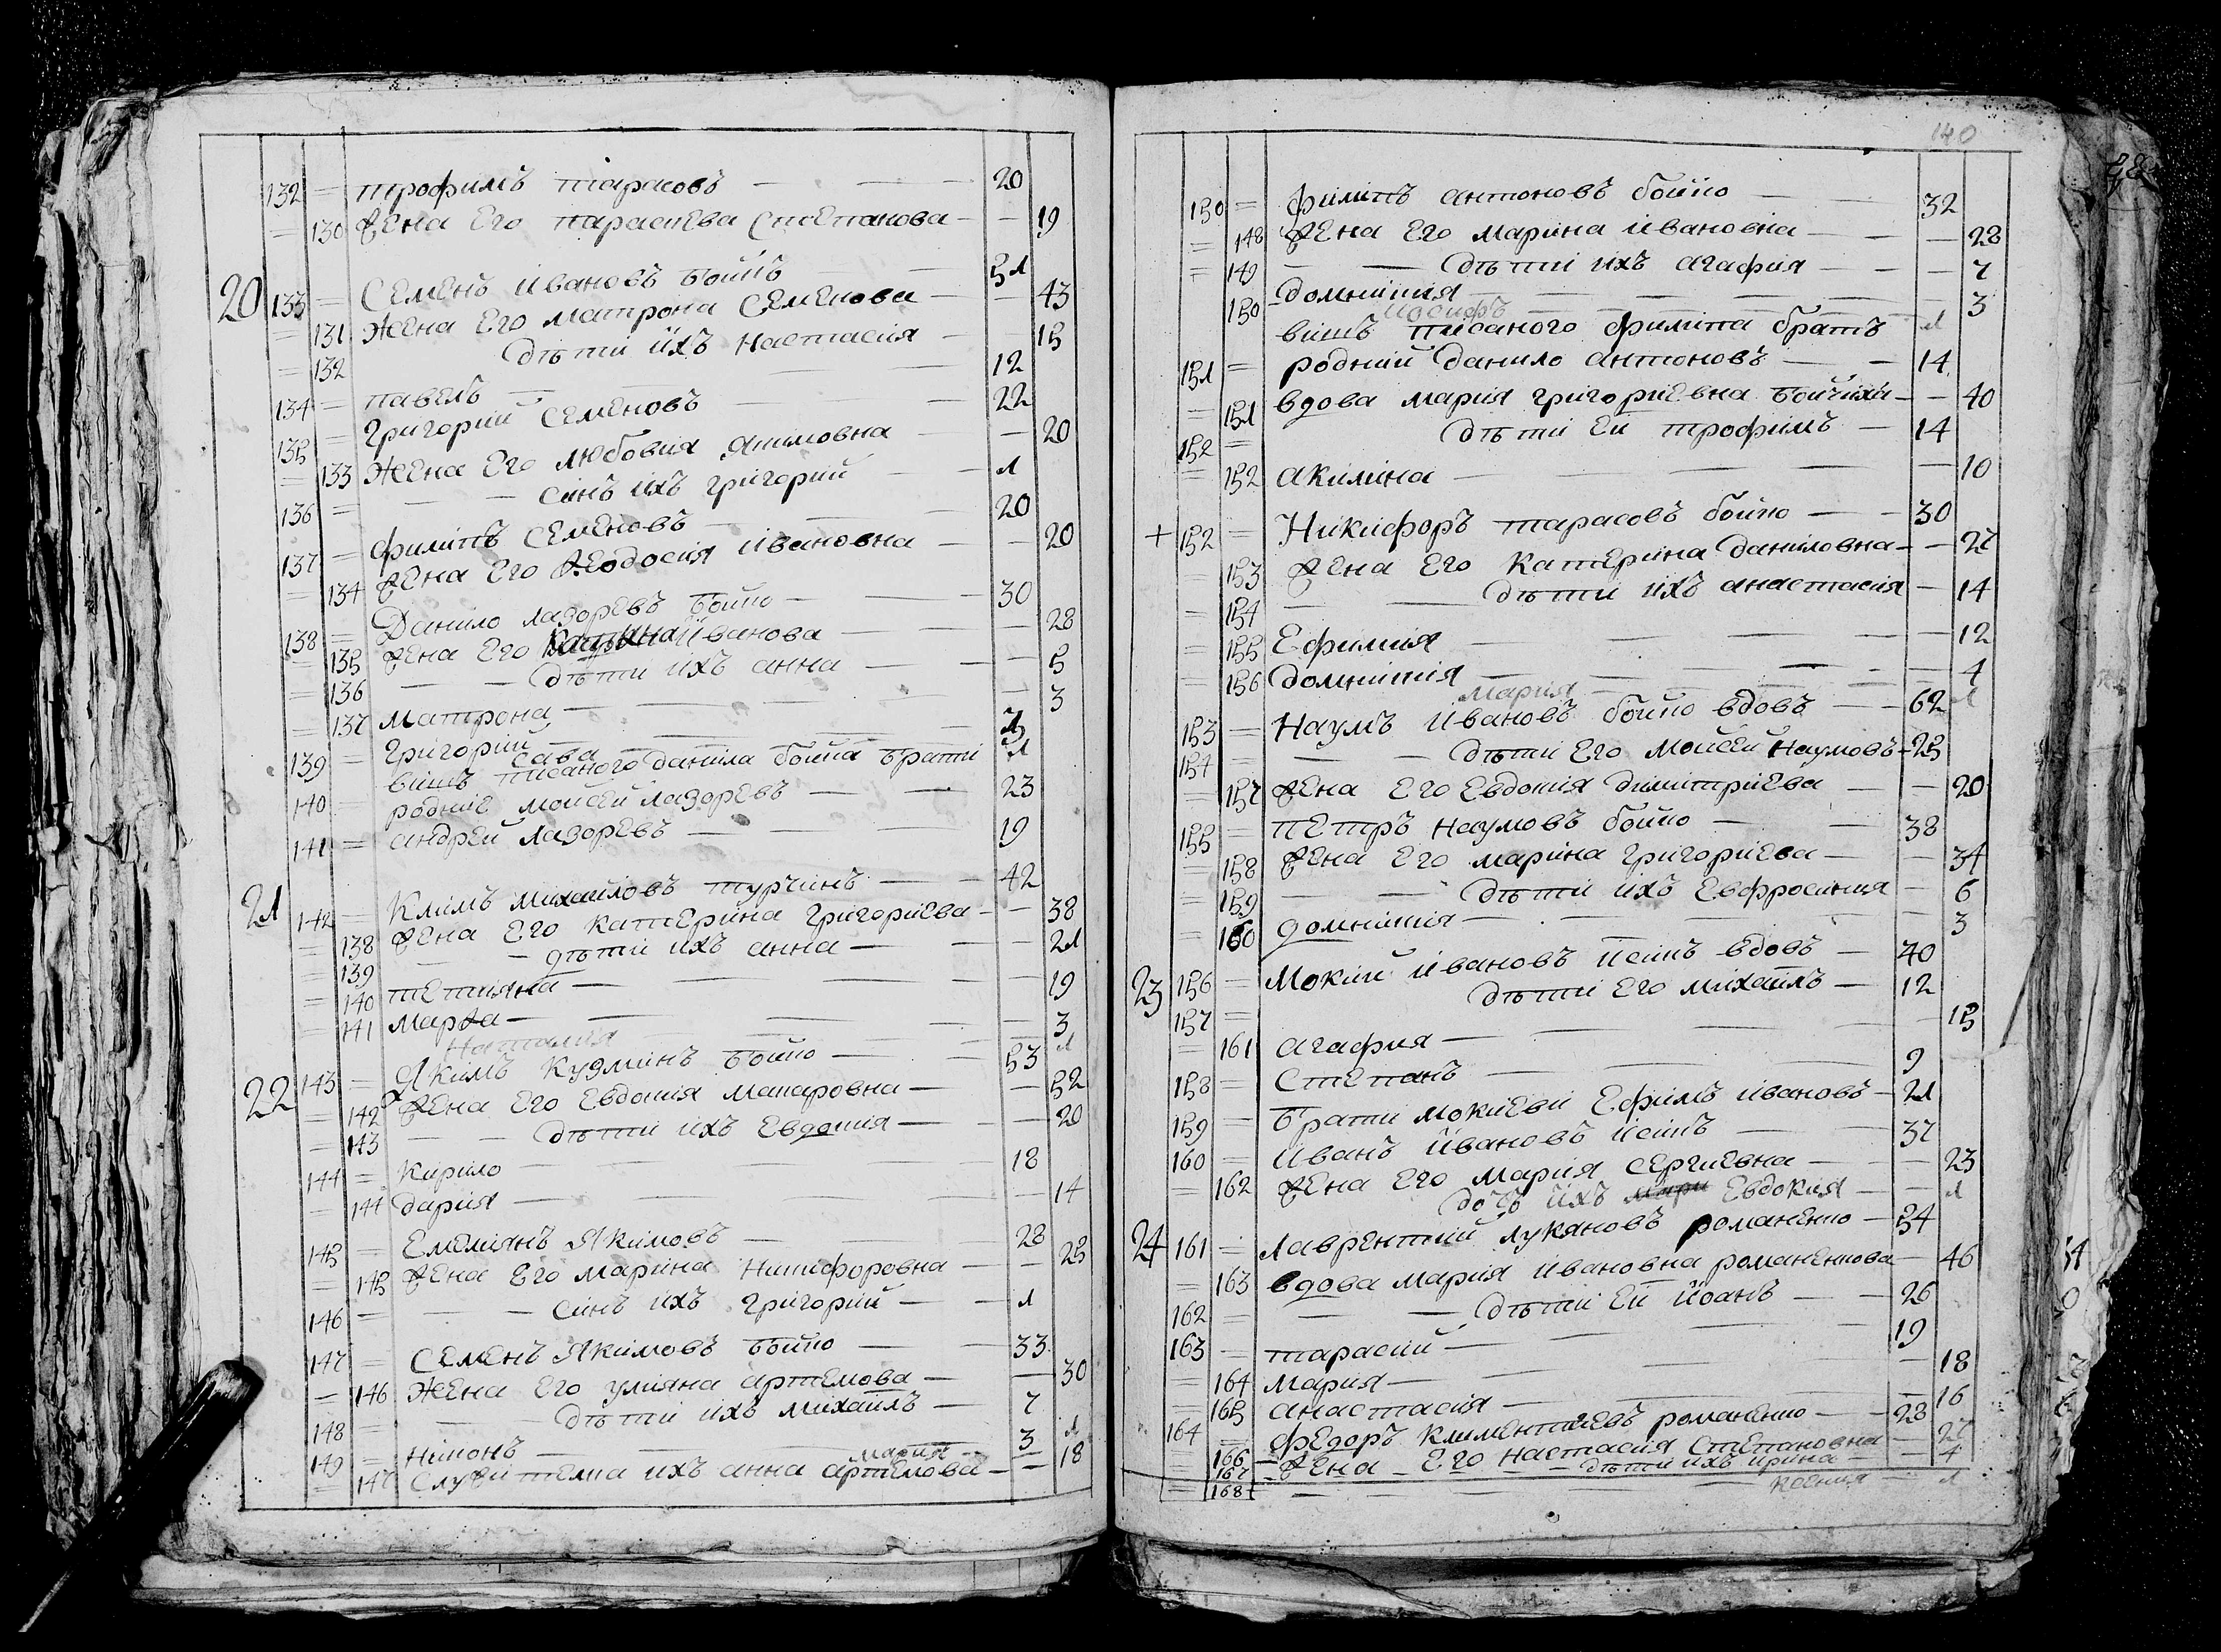 132 = трофимъ тарасовъ — — — 20
= 130 жена Его параскева степанова — — 19
20 133 = Семенъ ивановъ бойко — 51
= 131 Жена Его матрона Семенова — — 43
= 132 дѣти ихъ настасия — 15
134 = павелъ — — — 12
135 = григорий Семеновъ — — 22
= 133 Жена Его любовия якимовна — — 20
136 = — — синъ ихъ григорий — — 1
137 = филипъ Семеновъ — — — 20
= 134 жена Его Феодосия ивановна — — 20
138 = Данило лазоревъ бойко — — 30
= 135 жена Его иванова — — 28
= 136 — — дѣти ихъ анна — — — 5
= 137 матрона — — — — 3
139 = григорий — — —
сава — — 1
140 = вишъ писаного данила бойка брати
родние мойсей лазоревъ — — 23
141 = андрей лазоревъ — — — 19
21 142 = Климъ михайловъ турчинъ — — 42
= 138 жена Его катерина григориева — — 38
= 139 — — дѣти ихъ анна — — — 21
= 140 тетияна — — — — 19
= 141 марфа — — — — 3
Наталия — — — 1
22 143 = Якимъ Кузминъ бойко — — 53
= 142 жена Его Евдокия макаровна — — 52
= 143 — — дѣти ихъ Евдокия — — 20
144 = кирило — — — 18
= 144 дария — — — — 14
145 = Емелиянъ Якимовъ — — 28
= 145 жена Его марина Никифоровна — — 25
146 = — — синъ ихъ григорий — — 1
147 = Семенъ Якимовъ бойко — — 33
= 146 Жена Его улияна артемова — — 30
148 = — дѣти ихъ михайлъ — 7
149 = Никонъ — — — 3
мария — 1
= 147 Служителка ихъ анна артемова — — 18
140
150 = филипъ антоновъ бойко — — 32
= 148 жена Его марина ивановна — — — 28
= 149 — — дѣти ихъ агафия — — — 7
= 150 домникия — — — — 3
иосифъ — — 1
вишъ писаного филипа братъ
151 = родний данило антоновъ — — 14
= 151 вдова мария григориевна бойчиха — — 40
152 = дѣти Еи трофимъ — 14
= 152 акилина — — — — 10
+ 152 = Никифоръ тарасовъ бойко — — 30
= 153 жена Его катерина даниловна — — 27
= 154 — — дѣти ихъ анастасия — 14
= 155 Ефимия — — — — 12
= 156 домникия — — — — 4
мария — — 1
153 = Наумъ ивановъ бойко вдовъ — — 62
154 = — — дѣти Его мойсей наумовъ — 25
= 157 жена Его Евдокия димитриева — — 20
155 = петръ наумовъ бойко — — 38
= 158 жена Его марина григориева — — 34
= 159 — — дѣти ихъ Евфросиния — 6
= 160 домникия — — — — 3
23 156 = Мокий ивановъ вдовъ — 40
157 = дѣти Его михайлъ — 12
= 161 агафия — — — — 15
158 = Степанъ — — — 9
159 = брати мокиеви Ефимъ ивановъ — 21
160 = иванъ ивановъ — — 37
= 162 жена Его мария Сергиевна — — 23
дочъ ихъ Евдокия — — 1
24 161 = лаврентий лукяновъ романенко — 54
= 163 вдова мария ивановна романенкова — 46
162 = — — дѣти Ей иоанъ — — 26
163 = тарасий — — — 19
= 164 мария — — — — 18
= 165 анастасия — — — 16
164 = федоръ климентиевъ романенко — — 28
= 166 жена Его настасия Степановна — — 27
= 167 — — дѣти ихъ ирина — — 4
= 168 — — — ксения — 1